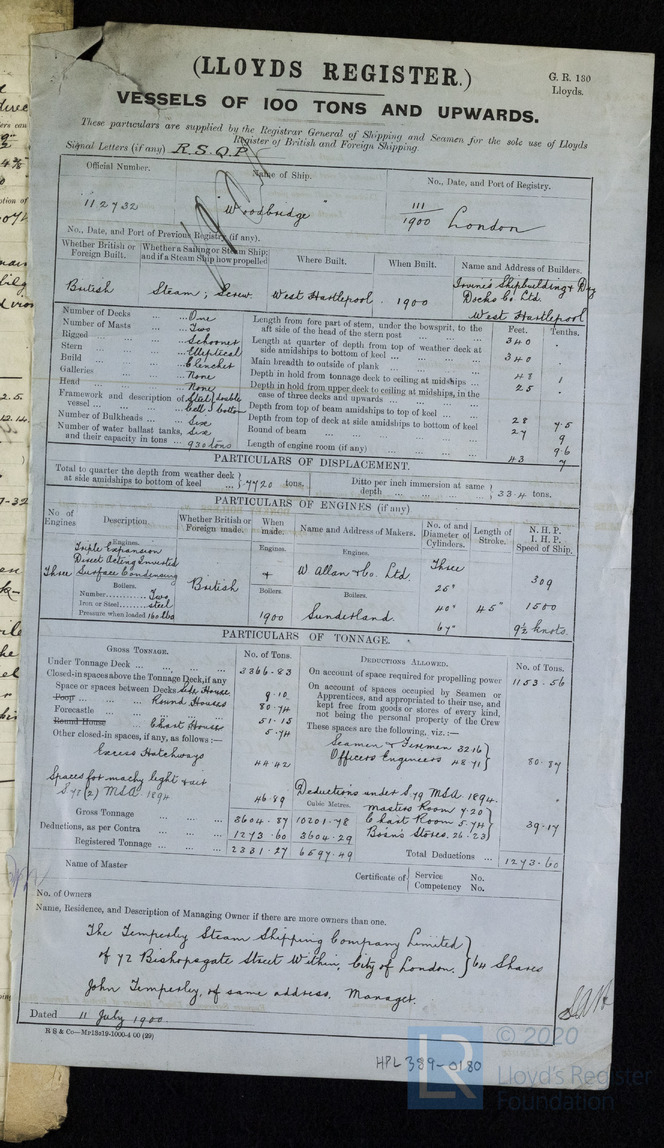 (LLOYDS REGISTER.)
G. R. 130
Lloyds.
VESSELS OF 100 TONS AND UPWARDS.
These particulars are supplied by the Registrar General of Shipping and Seamen for the sole use of Lloyds
Register of British and Foreign Shipping.
Signal Letters (if any) R.S.Q.P.
Official Number. Name of Ship. No., Date, and Port of Registry.
112732 "Woodbridge" 111/1900 London
No., Date, and Port of Previous Registry (if any).
Whether British or Foreign Built. Whether a Sailing or Steam Ship; and if a Steam Ship how propelled Where Built. When Built. Name and Address of Builders.
British Steam; Screw West Hartlepool. 1900 Irvine's Shipbuilding & Dry Docks Co. Ltd. West Hartlepool
Number of Decks ... One
Number of Masts ... Two
Rigged ... Schooner
Stern ... Elliptical
Build ... Clencher
Galleries ... None
Head ... None
Framework and description of vessel ... Steel; double Cell; bottom
Number of Bulkheads ... Six
Number of water ballast tanks, and their capacity in tons ... Six 930 tons
Feet. Tenths.
Length from fore part of stem, under the bowsprit, to the aft side of the head of the stern post ... 340 .
Length at quarter of depth from top of weather deck at side amidships to bottom of keel ... 340 .
Main breadth to outside of plank ... 48 1
Depth in hold from tonnage deck to ceiling at midships ... 25 .
Depth in hold from upper deck to ceiling at midships, in the case of three decks and upwards ...
Depth from top of beam amidships to top of keel ... 28 7.5
Depth from top of deck at side amidships to bottom of keel 27 9
Round of beam ... 9.6
Length of engine room (if any) ... 43 7
PARTICULARS OF DISPLACEMENT.
Total to quarter the depth from weather deck at side amidships to bottom of keel ... 7720 tons. Ditto per inch immersion at same depth ... 33.4 tons.
PARTICULARS OF ENGINES (if any)
No of Engines Description. Whether British or Foreign made. When made. Name and Address of Makers. No. of and Diameter of Cylinders. Length of Stroke. N. H. P. I. H. P. Speed of Ship.
Engines. Engines. Engines.
Three Triple Expansion Direct Acting Inverted Surface Condensing
British W Allan & Co. Ltd. Three 309
Boilers. Boilers. Boilers.
Number......... Two 25" 45"
Iron or Steel......... steel 1900 Sunderland. 40" 1500
Pressure when loaded 160 lbs 67" 9½ knots.
PARTICULARS OF TONNAGE.
GROSS TONNAGE. No. of Tons.
Under Tonnage Deck ... 3366.83
Closed-in spaces above the Tonnage Deck, if any
Space or spaces between Decks Side House 9.10
Poop ... Round Houses 80.74
Forecastle ... 51.15
Round House ... Chart House 5.74
Other closed-in spaces, if any, as follows:—
Excess Hatchways 44.42
Spaces for machy light & air S 78(2) MSA 1894 46.89
Gross Tonnage ... 3604.87 10201.78
Deductions, as per Contra ... 1273.60 3604.29
Registered Tonnage ... 2331.27 6597.49
Cubic Metres.
DEDUCTIONS ALLOWED. No. of Tons.
On account of space required for propelling power 1153.56
On account of spaces occupied by Seamen or Apprentices, and appropriated to their use, and kept free from goods or stores of every kind, not being the personal property of the Crew
These spaces are the following, viz.:—
Seamen & Firemen 32.16
Officers Engineers 48.71 80.87
Deductions under S. 79 MSA 1894.
Masters Room 7.20
Chart Room 5.74
Bosn's Stores. 26.23 39.17
Total Deductions ... 1273.60
Name of Master Certificate of Service No. Competency No.
No. of Owners
Name, Residence, and Description of Managing Owner if there are more owners than one.
The Temperley Steam Shipping Company Limited
of 72 Bishopsgate Street Within, City of London. 64 Shares
John Temperley, of same address. Manager.
Dated 11 July 1900.
R S & Co—Mp13s19-1000-4 00 (29)
HPL 389-0180
LR
© 2020
Lloyd's Register
Foundation